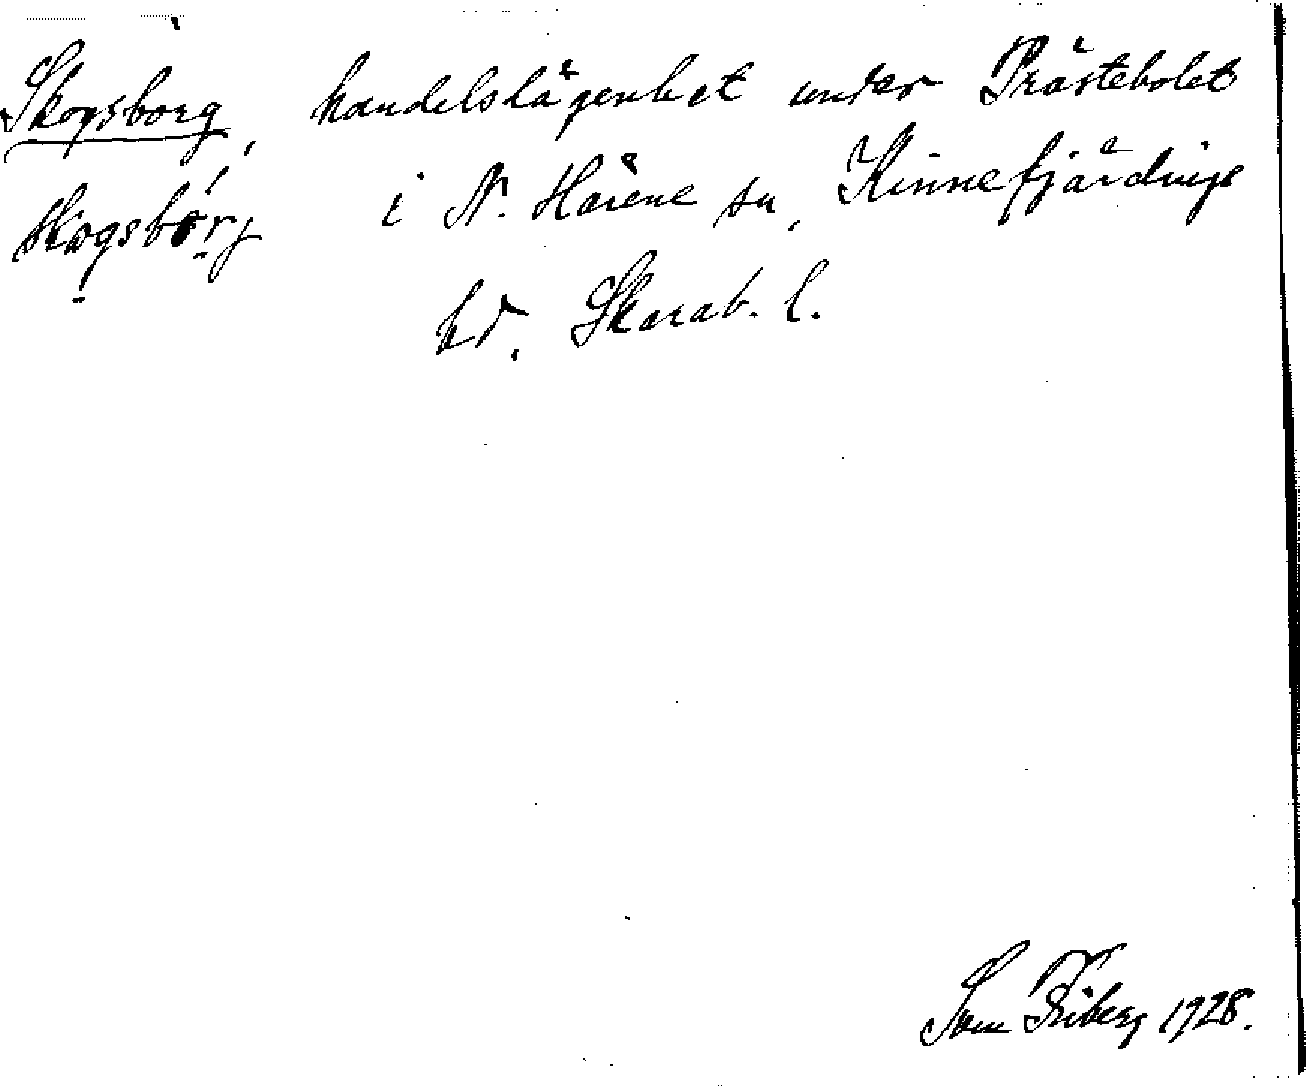 Skogsborg, handelslägenhet under Prästebolet
skogsborg i N. Härene sn, Kinnefjärdings
hd. Skarab. l.
Sven Friberg 1928.